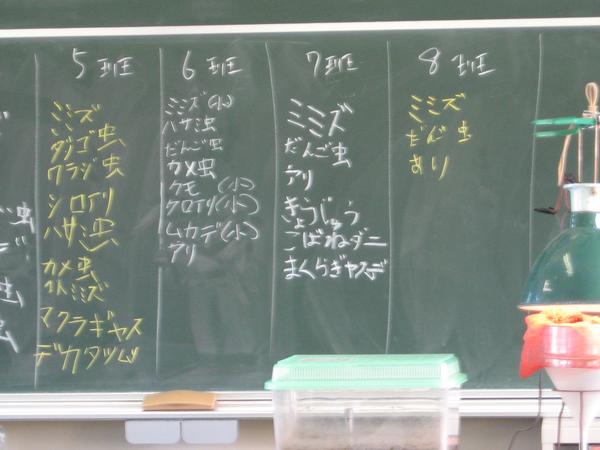 5班
ミミズ
ダンゴ虫
ワラジ虫
シロイリ
ハサミ虫
カメ虫
ミミズ
マクラギヤス
デカタツム
6班
ミミズ(小)
ハサミ虫
だんご虫
カメ虫
クモ(小)
クロイリ(小)
ムカデ(小)
アリ
7班
ミミズ
だんご虫
アリ
きょうじゅう
こばねダニ
まくらぎヤスデ
8班
ミミズ
だんご虫
あり